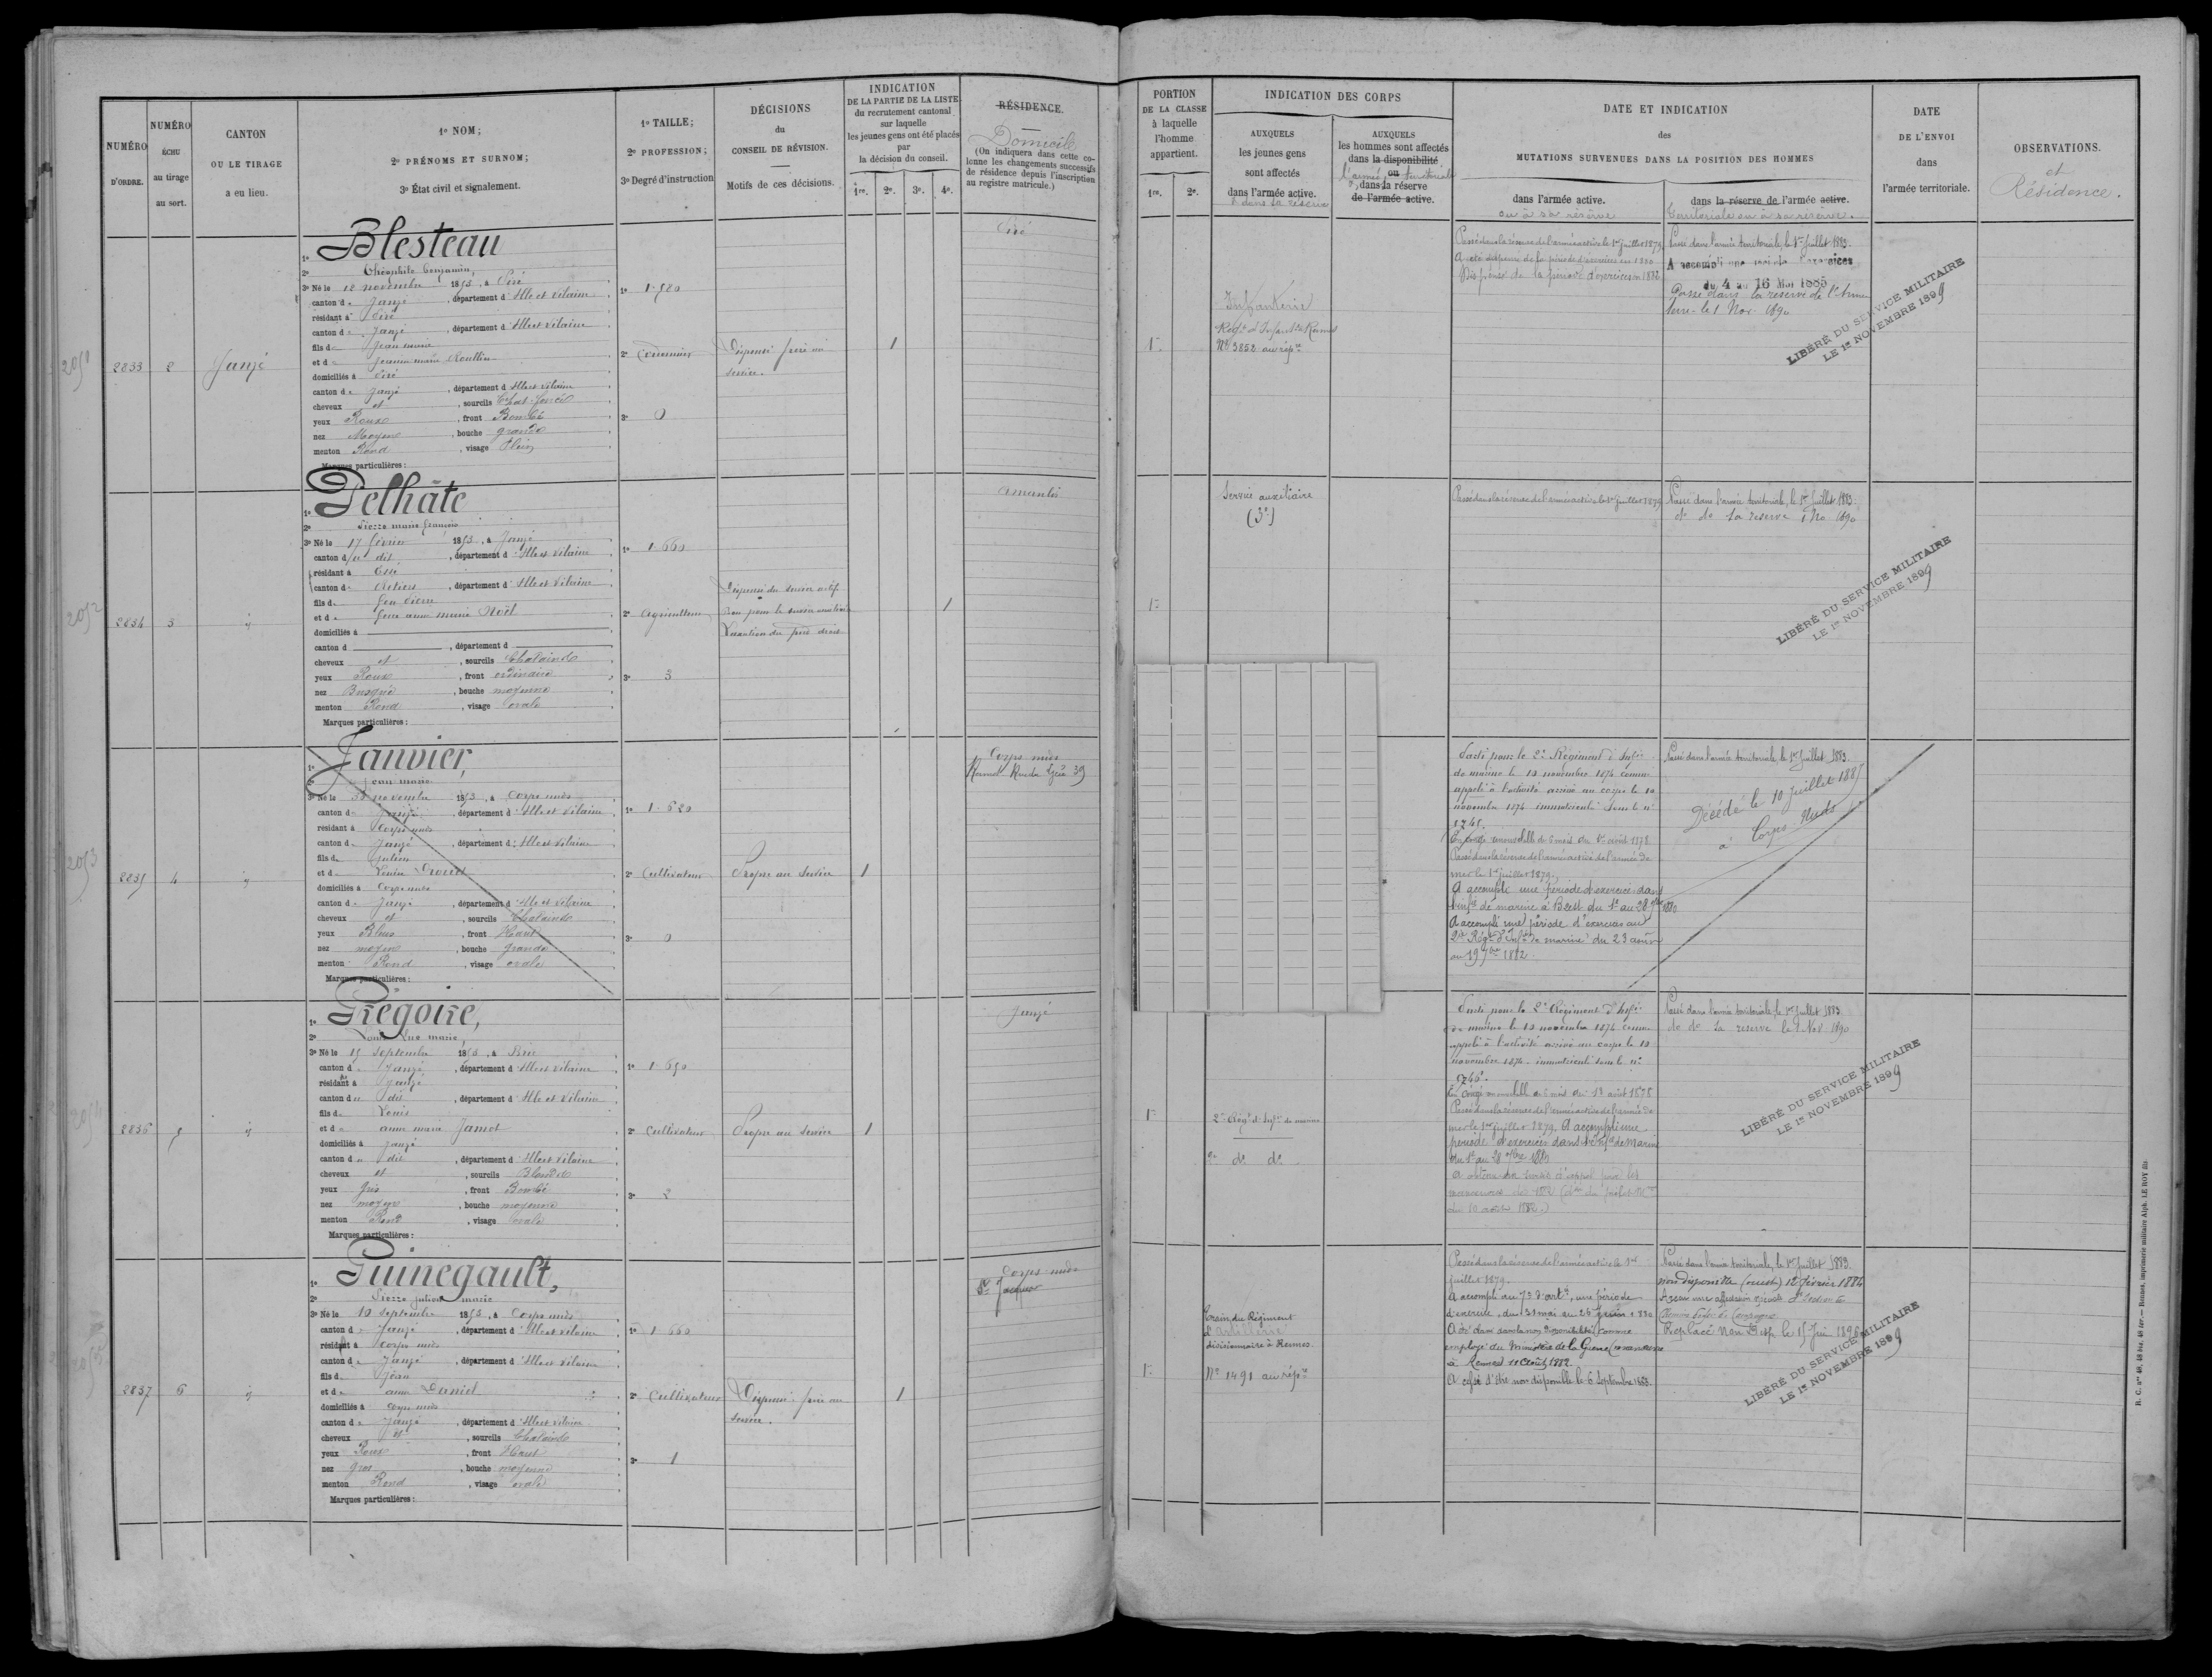 NUMÉRO
D'ORDRE.
NUMÉRO
ÉCHU
au tirage
au sort.
CANTON
OU LE TIRAGE
a eu lieu.
1º NOM;
2º PRÉNOMS ET SURNOM;
3º État civil et signalement.
1º TAILLE;
2º PROFESSION;
3º Degré d'instruction
DÉCISIONS
du
CONSEIL DE RÉVISION.
Motifs de ces décisions.
INDICATION
DE LA PARTIE DE LA LISTE
du recrutement cantonal
sur laquelle
les jeunes gens ont été placés
par
la décision du conseil.
1re. 2e. 3e. 4e.
RÉSIDENCE.
Domicile
(On indiquera dans cette co-
lonne les changements successifs
de résidence depuis l'inscription
au registre matricule.)
2833 2 Janzé
1º Blesteau
2º Théophile Benjamin,
3º Né le 12 novembre 1853, à Piré
canton de Janzé, département d'Ille et Vilaine
résidant à Piré
canton de Janzé, département d'Ille et Vilaine
fils de Jean marie
et de Jeanne marie Roullin
domiciliés à Piré
canton de Janzé, département d'Ille et Vilaine
cheveux et, sourcils Chat. foncé
yeux Roux, front Bombé
nez Moyen, bouche grande
menton Rond, visage Plein
Marques particulières:
1º 1.580
2º Cordonnier
3º 0
Dispensé frère au
service.
1
Piré
2834 3 id
1º Pelhâte
2º Pierre marie françois
3º Né le 17 février 1853, à Janzé
canton du dit, département d'Ille et Vilaine
résidant à Essé
canton de Retiers, département d'Ille et Vilaine
fils de feu Pierre
et de feue anne marie Noël
domiciliés à
canton d, département d
cheveux et, sourcils Chatains
yeux Roux, front ordinaire
nez Busqué, bouche moyenne
menton Rond, visage ovale
Marques particulières:
1º 1.660
2º agriculteur
3º 3
Dispensé du service actif
Bon pour le service auxiliaire
du pied droit
1
amanlis
2835 4 id
1º Janvier,
2º Jean marie
3º Né le novembre 1853, à Corps nuds
canton de Janzé, département d'Ille et Vilaine
résidant à Corps nuds
canton de Janzé, département d'Ille et Vilaine
fils de Julien
et de Louise
domiciliés à Corps nuds
canton de Janzé, département d'Ille et Vilaine
cheveux et, sourcils Chatains
yeux Bleus, front Haut
nez moyen, bouche grande
menton Rond, visage ovale
Marques particulières:
1º 1.620
2º Cultivateur
3º 0
Propre au service
1
Corps nuds
Rennes Rue du Lycée 39
2836 5 id
1º Grégoire,
2º Louis Luc marie,
3º Né le 15 septembre 1853, à Brie
canton de Janzé, département d'Ille et Vilaine
résidant à Janzé
canton du dit, département d'Ille et Vilaine
fils de Louis
et de anne marie Jamot
domiciliés à Janzé
canton du dit, département d'Ille et Vilaine
cheveux et, sourcils Blonds
yeux gris, front Bombé
nez moyen, bouche moyenne
menton Rond, visage ovale
Marques particulières:
1º 1.650
2º Cultivateur
3º 2
Propre au service
1
Janzé
2837 6 id
1º Guinegault,
2º Pierre julien marie
3º Né le 10 septembre 1853, à Corps nuds
canton de Janzé, département d'Ille et Vilaine
résidant à Corps nuds
canton de Janzé, département d'Ille et Vilaine
fils de Jean
et de anne Daniel
domiciliés à Corps nuds
canton de Janzé, département d'Ille et Vilaine
cheveux et, sourcils Chatains
yeux Roux, front Haut
nez gros, bouche moyenne
menton Rond, visage ovale
Marques particulières:
1º 1.660
2º Cultivateur
3º 1
Dispensé frère au
service.
1
Corps nuds
St Jacques
PORTION
DE LA CLASSE
à laquelle
l'homme
appartient.
1re. 2e.
INDICATION DES CORPS
AUXQUELS
les jeunes gens
sont affectés
dans l'armée active.
& dans sa réserve
AUXQUELS
les hommes sont affectés
dans la disponibilité
ou
l'armée territoriale
& dans la réserve
de l'armée active.
DATE ET INDICATION
des
MUTATIONS SURVENUES DANS LA POSITION DES HOMMES
dans l'armée active.
ou à sa réserve
dans la réserve de l'armée active.
territoriale ou à sa réserve.
DATE
DE L'ENVOI
dans
l'armée territoriale.
OBSERVATIONS.
et
Résidence.
1re
Infanterie
Régt d'Infanterie Rennes
No 3852 au rép.re
Passé dans la réserve de l'armée active le 1er juillet 1879
A été dispensé de la période d'exercices en 1880
Dispensé de la période d'exercices en 1882
Passé dans l'armée territoriale, le 1er Juillet 1883.
A accompli une période d'exercices
du 4 au 16 Mai 1885
Passé dans la réserve de l'armée
terre le 1 Nov. 1890
LIBÉRÉ DU SERVICE MILITAIRE
LE 1er NOVEMBRE 1899
1re
Service auxiliaire
(3e)
Passé dans la réserve de l'armée active le 1er juillet 1879
Passé dans l'armée territoriale, le 1er Juillet 1883.
do do la réserve 1 No 1890
LIBÉRÉ DU SERVICE MILITAIRE
LE 1er NOVEMBRE 1899
Parti pour le 2e Régiment d'Infie
de marine le 10 novembre 1874 comme
appelé à l'activité arrivé au corps le 10
novembre 1874 immatriculé sous le no
En congé renouvelable de 6 mois du 1er août 1878
Passé dans la réserve de l'armée active de l'armée de
mer le 1er juillet 1879.
A accompli une période d'exercices dans
l'infie de marine à Brest du 1er au 28 7bre 1880
A accompli une période d'exercices au
2e Régt d'Infie de marine du 23 août
au 19 7bre 1882.
Passé dans l'armée territoriale le 1er Juillet 1883.
Décédé le 10 juillet 1885
à Corps-Nuds
1re
2e Régt d'Infie de marine
2e do do
Parti pour le 2e Régiment d'Infie
de marine le 10 novembre 1874 comme
appelé à l'activité arrivé au corps le 10
novembre 1874. immatriculé sous le no
En congé renouvelable de 6 mois du 1er août 1878
Passé dans la réserve de l'armée active de l'armée de
mer le 1er juillet 1879. A accompli une
période d'exercices dans l'infie de Marine
du 1er au 28 7bre 1880
A obtenu un sursis d'appel pour les
manœuvres de 1882
du 10 août 1882.)
Passé dans l'armée territoriale, le 1er Juillet 1883
do do la réserve le 1 Nov 1890
LIBÉRÉ DU SERVICE MILITAIRE
LE 1er NOVEMBRE 1899
1re
Train du Régiment
d'artillerie
divisionnaire à Rennes
No 1491 au rép.re
Passé dans la réserve de l'armée active le 1er
juillet 1879.
A accompli au 7e d'artie, une période
d'exercices, du 31 mai au 25 juin 1880
A été classé dans la non disponibilité comme
employé du Ministère de la Guerre
à Rennes 11 Août 1882
A cessé d'être non disponible le 6 Septembre 1883.
Passé dans l'armée territoriale, le 1er Juillet 1883.
non disponible (ouest) 12 février 1884
Replacé Non Disp. le 15 Juin 1896
LIBÉRÉ DU SERVICE MILITAIRE
LE 1er NOVEMBRE 1899
R. C. nos 48, 48 bis, 48 ter. — Rennes, imprimerie militaire Alph. LE ROY fils.